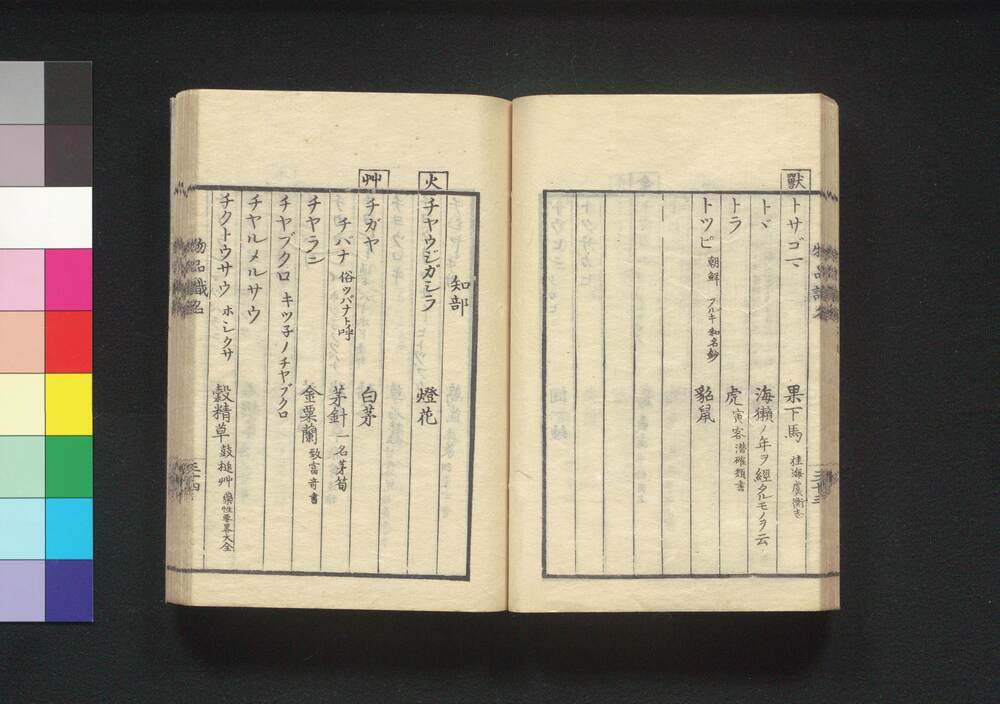 獸
トサゴマ 果下馬 桂海虞衡志
トヾ 海獺ノ年ヲ經タルモノヲ云
トラ 虎 寅客 潜確類書
トツピ 朝鮮 フルキ 和名鈔 貂鼠
物品識名
三十三
知部
火
チヤウジガシラ 燈花
艸
チガヤ 白茅
チバナ 俗ツバナト呼 茅針 一名茅筍
チヤラン 金粟蘭 致富奇書
チヤブクロ キツ子ノチヤブクロ
チヤルメルサウ
チクトウサウ ホシクサ 穀精草 鼓槌艸 藥性要畧大全
物品識名
三十四